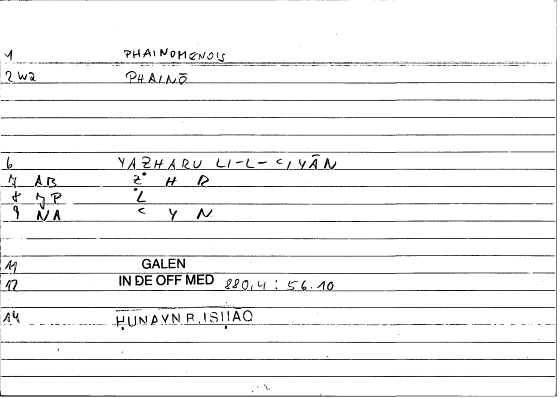 1 PHAINOMENOIS
2 W2 PHAINŌ
6 YAẒHARU LI-L-ʿIYĀN
7 AB Ẓ H R
8 JP L
9 NA ʿ Y N
11 GALEN
12 IN DE OFF MED 880,4 : 56.10
14 ḤUNAYN B. ISḤĀQ